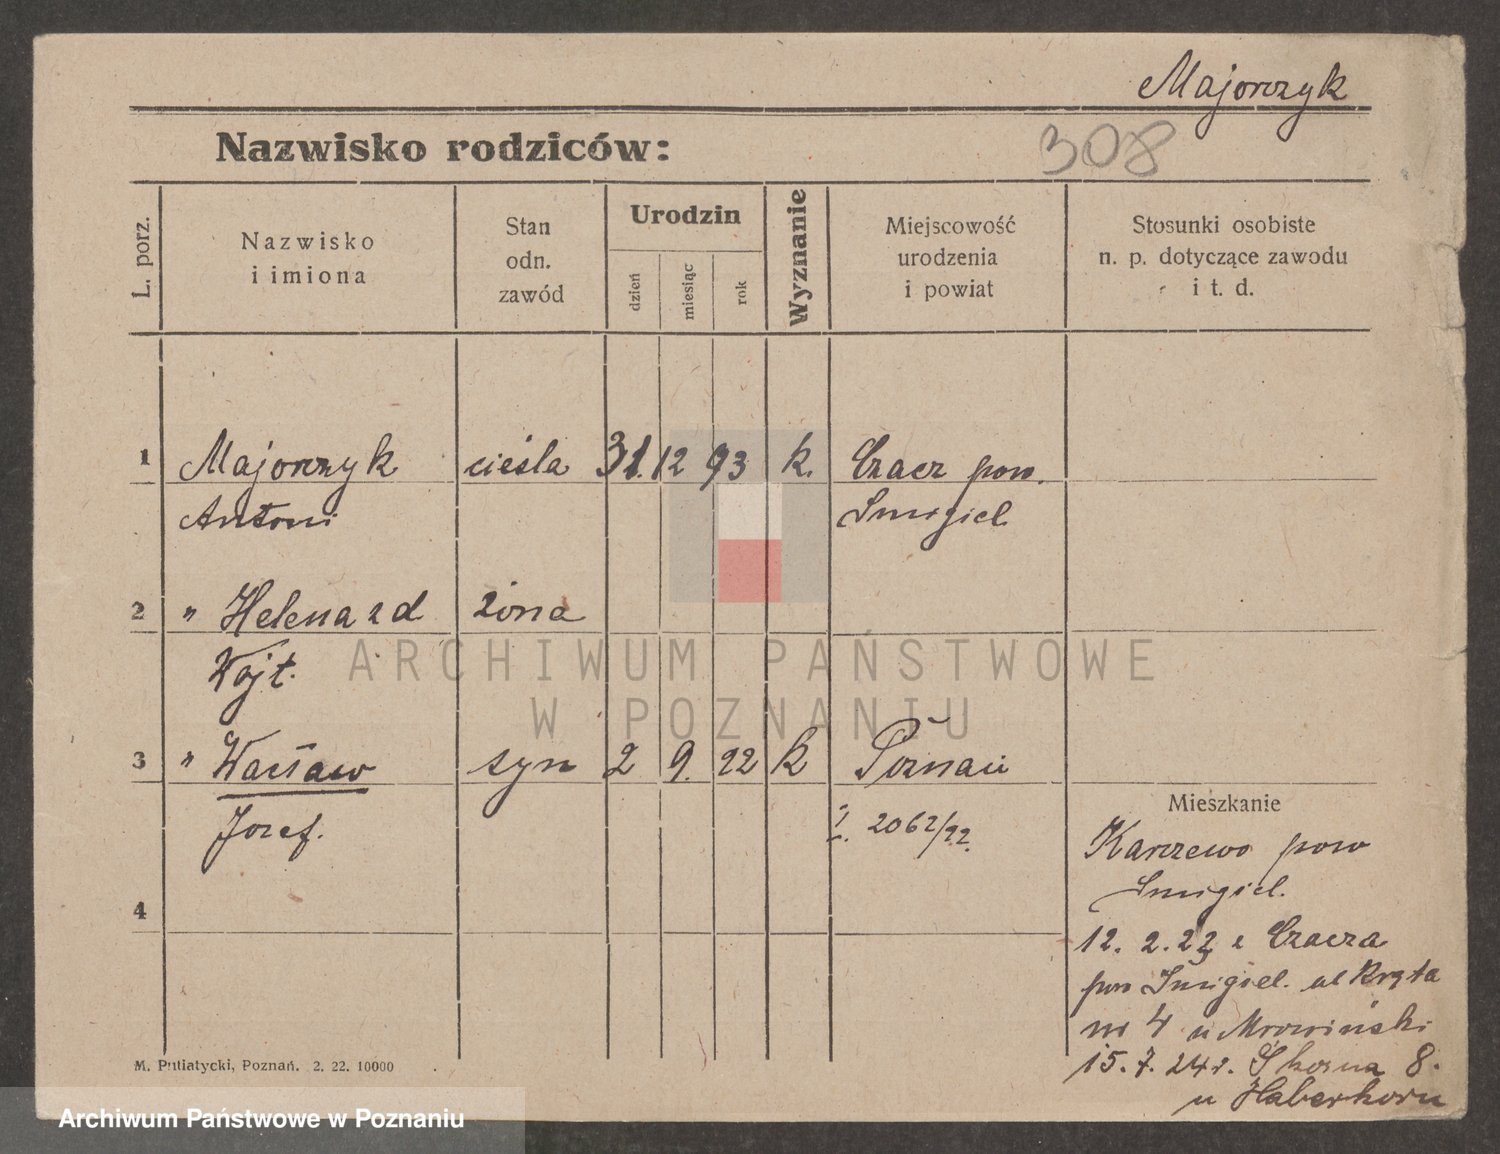 Majorczyk
Nazwisko rodziców:
308
L. porz.
Nazwisko
i imiona
Stan
odn.
zawód
Urodzin
dzień
miesiąc
rok
Wyznanie
Miejscowość
urodzenia
i powiat
Stosunki osobiste
n. p. dotyczące zawodu
i t. d.
1 Majorczyk cieśla 31. 12 93 k. Czacz pow.
Antoni Śmigiel
2 " Helena z d żona
Wojt.
3 " Wacław syn 2 9. 22 k Poznań
Józef. 2062/22.
4
Mieszkanie
Karczewo pow
Śmigiel.
12. 2. 22 z Czacza
pow Śmigiel. ul Kręta
nr 4 u Mrowiński
15. 7. 24 r. 8.
u Haberkorn
M. Putiatycki, Poznań. 2. 22. 10000
ARCHIWUM PAŃSTWOWE
W POZNANIU
Archiwum Państwowe w Poznaniu